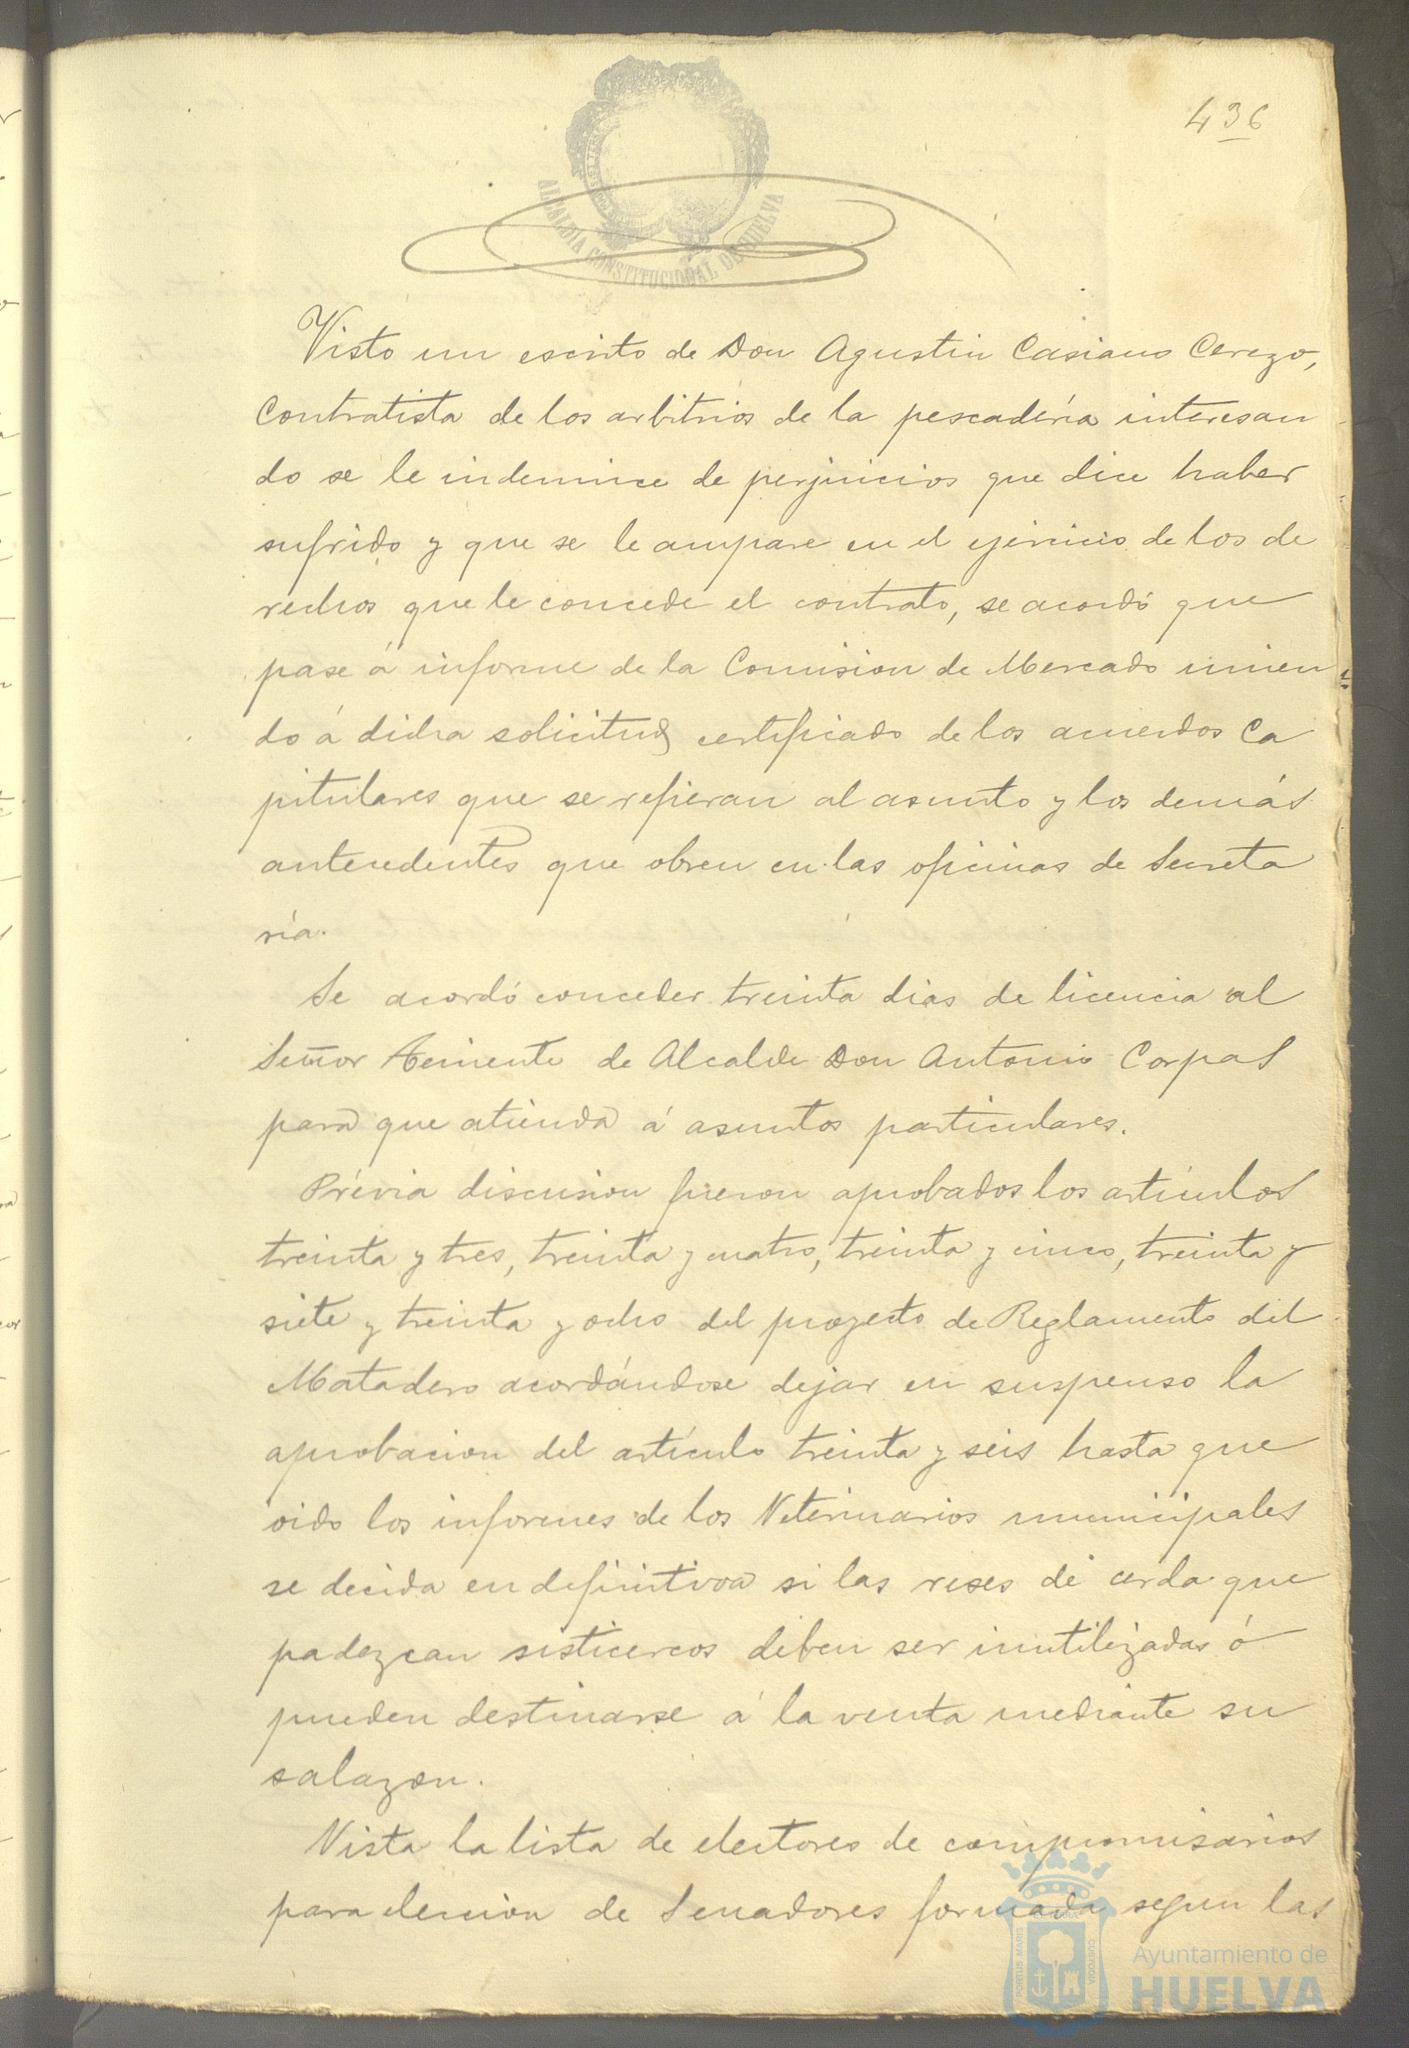 436
ALCALDIA CONSTITUCIONAL DE HUELVA
Visto un escrito de Don Agustin Casiano Cerezo,
contratista de los arbitrios de la pescadería interesan
do se le indemnice de perjuicios que dice haber
sufrido y que se le ampare en el ejercicio de los de
rechos que le concede el contrato, se acordó que
pase á informe de la Comision de Mercado unien
do á dicha solicitud certificado de los acuerdos Ca
pitulares que se refieran al asunto y los demás
antecedentes que obren en las oficinas de Secreta
ría.
Se acordó conceder treinta dias de licencia al
Señor Teniente de Alcalde Don Antonio Corpas
para que atienda á asuntos particulares.
Prévia discusion fueron aprobados los artículos
treinta y tres, treinta y cuatro, treinta y cinco, treinta y
siete y treinta y ocho del proyecto de Reglamento del
Matadero acordándose dejar en suspenso la
aprobacion del artículo treinta y seis hasta que
oido los informes de los Veterinarios municipales
se decida en definitiva si las reses de cerda que
padezcan sisticercos deben ser inutilizadas ó
pueden destinarse á la venta mediante su
salazon.
Vista la lista de electores de compromisarios
para eleccion de Senadores formada segun las
PORTUS MARIS
CUSTODIA
Ayuntamiento de
HUELVA